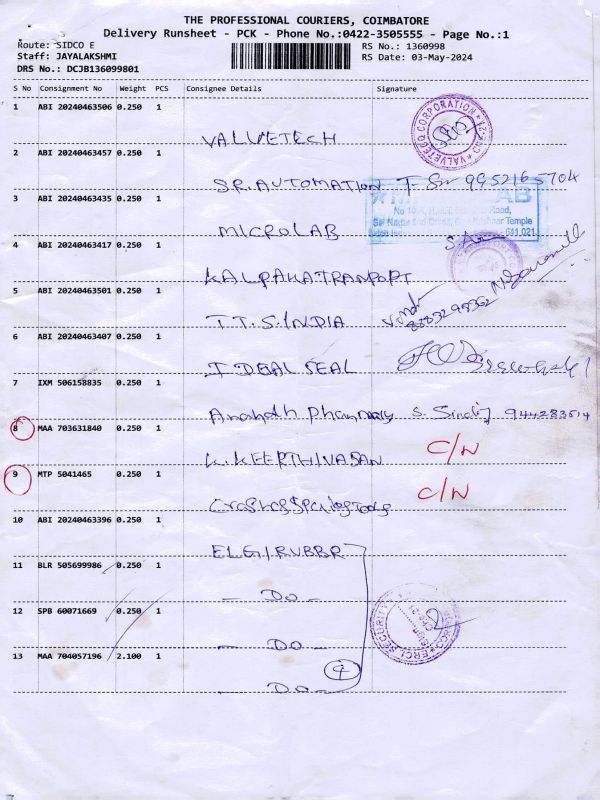 THE PROFESSIONAL COURIERS, COIMBATORE
Delivery Runsheet - PCK - Phone No.:0422-3505555 - Page No.:1
Route: SIDCO E
RS No.: 1360998
Staff: JAYALAKSHMI
RS Date: 03-May-2024
DRS No.: DCJB136099801
S No Consignment No Weight PCS Consignee Details Signature
1 ABI 20240463506 0.250 1
VALVETECH
VALVETECQ CORPORATION
2 ABI 20240463457 0.250 1
S.R. AUTOMATION 9952165704
3 ABI 20240463435 0.250 1
MICROLAB
LAB
Road,
Temple
641 021.
4 ABI 20240463417 0.250 1
KALPAKA TRANPORT
5 ABI 20240463501 0.250 1
T.T.S. INDIA
6 ABI 20240463407 0.250 1
IDEAL SEAL
7 IXM 506158835 0.250 1
Pharmacy S. 944283514
8 MAA 703631840 0.250 1
K. KEERTHIVASAN C/N
9 MTP 5041465 0.250 1
C/N
10 ABI 20240463396 0.250 1
ELGI RUBBR
11 BLR 505699986 0.250 1
- Do -
12 SPB 60071669 0.250 1
- Do -
SECURITY
13 MAA 704057196 2.100 1
- Do -